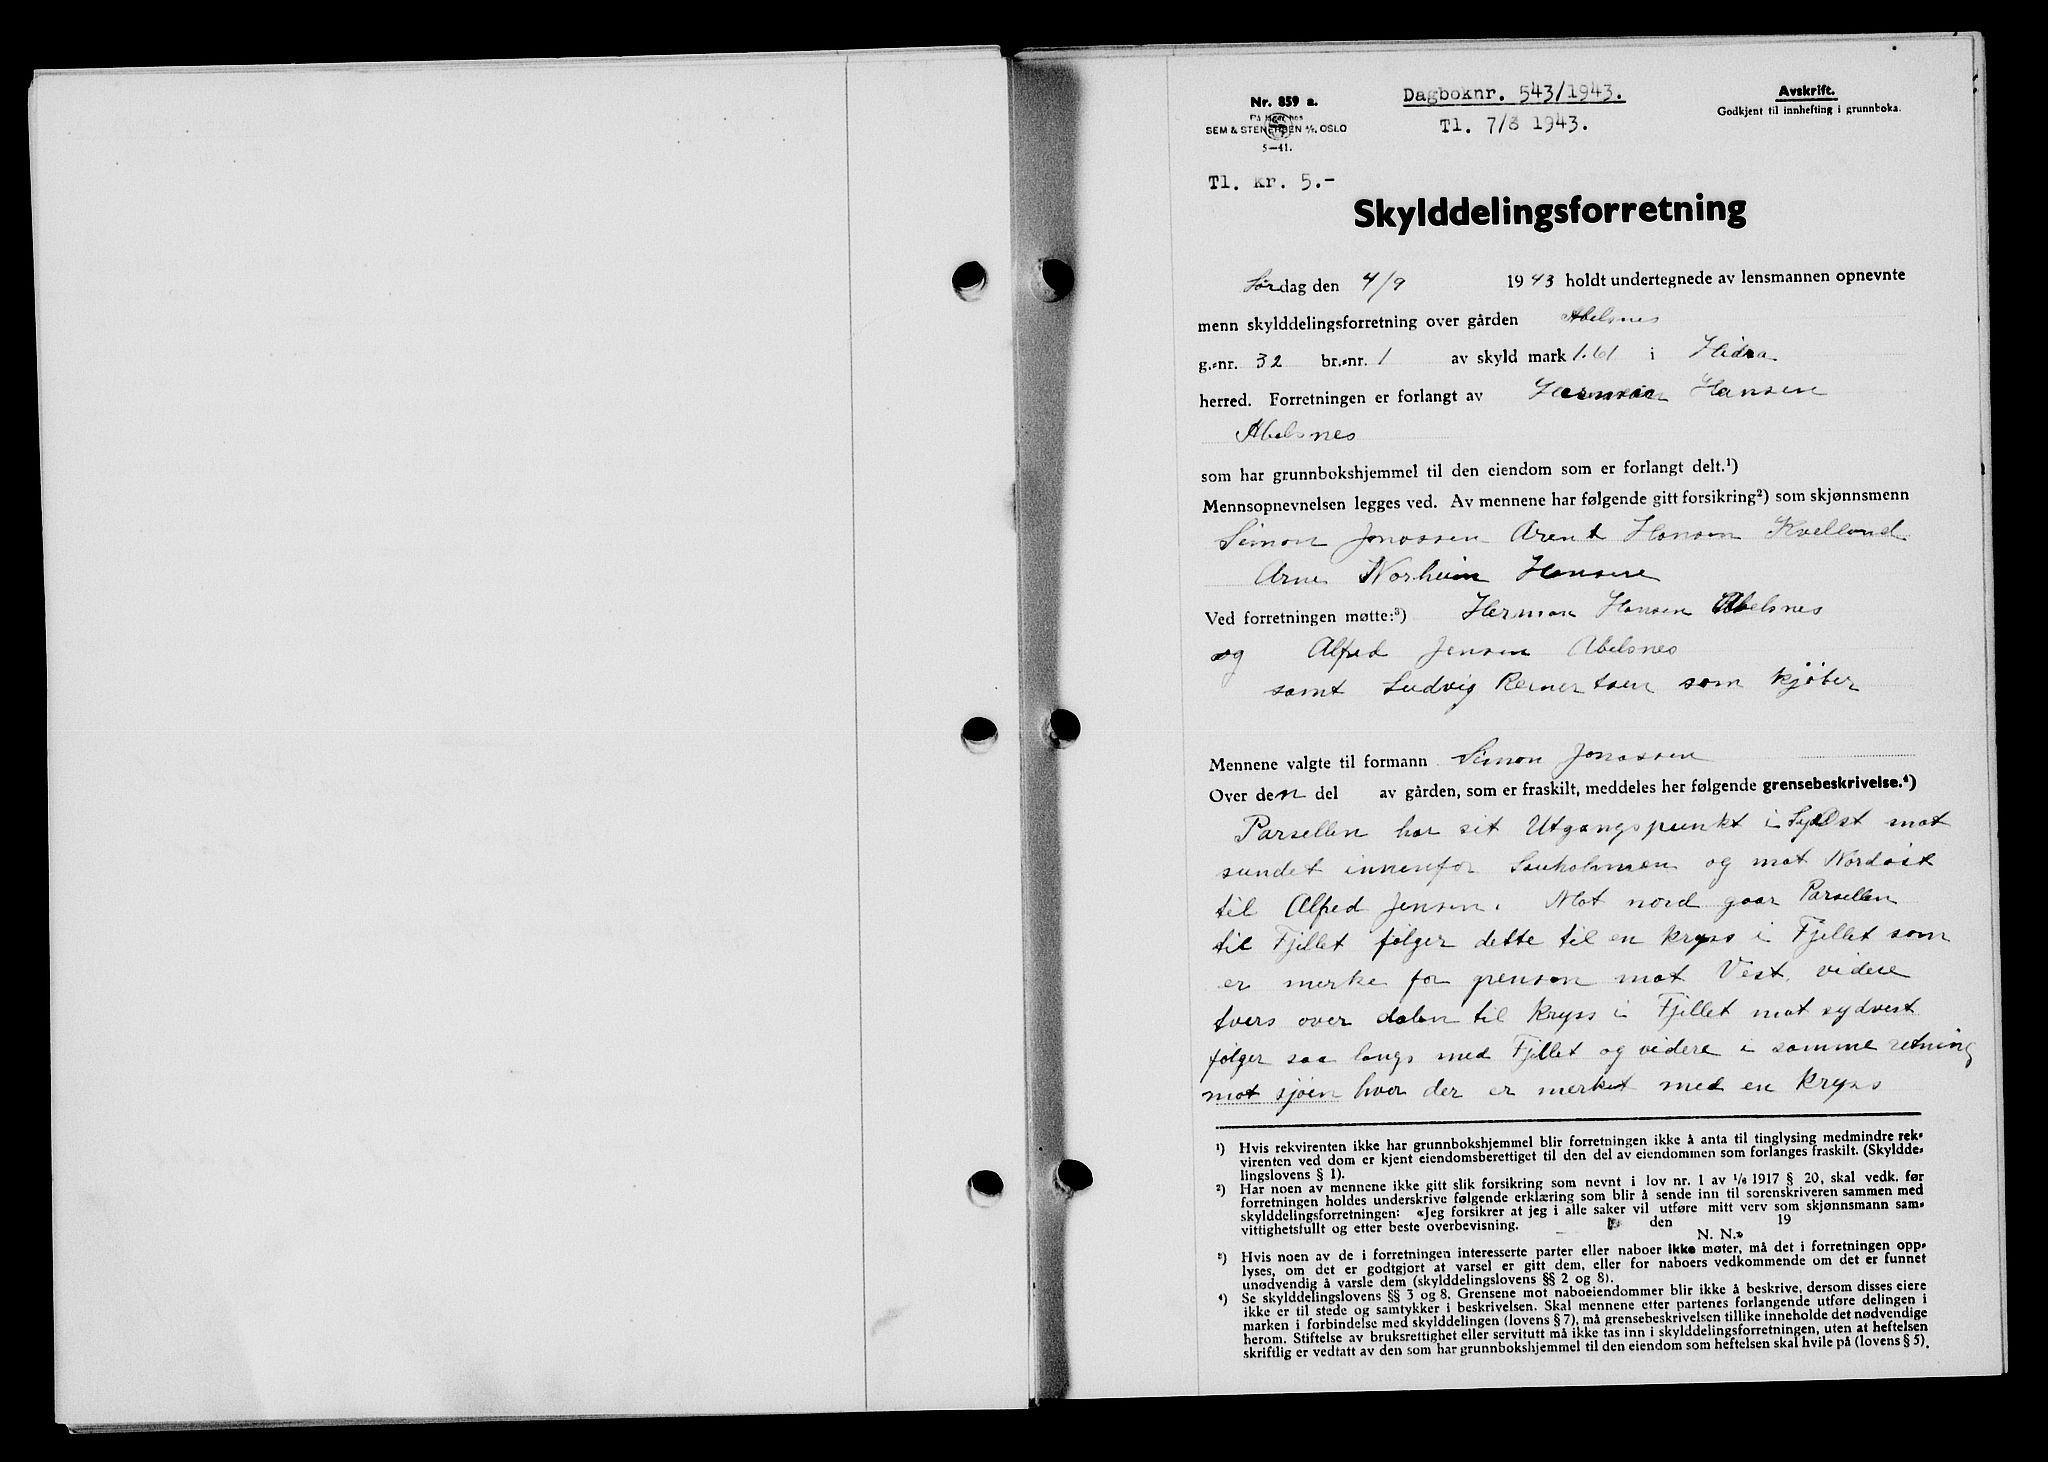 Nr. 859 a.
På lager hos
SEM & STENERSEN A/S, OSLO
5—41.
Dagboknr. 543/1943.
Tl. 7/8 1943.
Avskrift.
Godkjent til innhefting i grunnboka.
Tl. kr. 5.-
Skylddelingsforretning
Lørdag den 4/9 1943 holdt undertegnede av lensmannen opnevnte
menn skylddelingsforretning over gården Abelsnes
g.-nr. 32 br.-nr. 1 av skyld mark 1.61 i Hidra
herred. Forretningen er forlangt av Herman Hansen
Abelsnes
som har grunnbokshjemmel til den eiendom som er forlangt delt.¹)
Mennsopnevnelsen legges ved. Av mennene har følgende gitt forsikring²) som skjønnsmenn
Simon Jonassen Arent Hansen Kvelland
Arne Norheim Hansen
Ved forretningen møtte:³) Herman Hansen Abelsnes
og Alfred Jensen Abelsnes
samt Ludvig Reinertsen som kjøber
Mennene valgte til formann Simon Jonassen
Over den del av gården, som er fraskilt, meddeles her følgende grensebeskrivelse.⁴)
Parsellen har sit Utgangspunkt i SydOst mot
sundet innenfor Sauholmen og mot Nordøst
til Alfred Jensen. Mot nord gaar Parsellen
til Fjellet følger dette til en kryss i Fjellet som
er merke for grensen mot Vest. videre
tvers over dalen til kryss i Fjellet mot sydvest
følger saa langs med Fjellet og videre i samme retning
mot sjøen hvor der er merket med en kryss
¹) Hvis rekvirenten ikke har grunnbokshjemmel blir forretningen ikke å anta til tinglysing medmindre rek-
virenten ved dom er kjent eiendomsberettiget til den del av eiendommen som forlanges fraskilt. (Skyldde-
lingslovens § 1).
²) Har noen av mennene ikke gitt slik forsikring som nevnt i lov nr. 1 av 1/6 1917 § 20, skal vedk. før
forretningen holdes underskrive følgende erklæring som blir å sende inn til sorenskriveren sammen med
skylddelingsforretningen: «Jeg forsikrer at jeg i alle saker vil utføre mitt verv som skjønnsmann sam-
vittighetsfullt og etter beste overbevisning. den 19
N. N.»
³) Hvis noen av de i forretningen interesserte parter eller naboer ikke møter, må det i forretningen opp-
lyses, om det er godtgjort at varsel er gitt dem, eller for naboers vedkommende om det er funnet
unødvendig å varsle dem (skylddelingslovens §§ 2 og 8).
⁴) Se skylddelingslovens §§ 3 og 8. Grensene mot naboeiendommer blir ikke å beskrive, dersom disses eiere
ikke er til stede og samtykker i beskrivelsen. Skal mennene etter partenes forlangende utføre delingen i
marken i forbindelse med skylddelingen (lovens § 7), må grensebeskrivelsen tillike inneholde det nødvendige
herom. Stiftelse av bruksrettighet eller servitutt må ikke tas inn i skylddelingsforretningen, uten at heftelsen
skriftlig er vedtatt av den som har grunnbokshjemmel til den eiendom som heftelsen skal hvile på (lovens § 5).